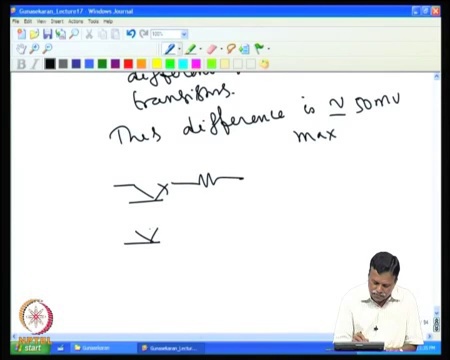 Gunasekaran_Lecture17 - Windows Journal
File Edit View Insert Actions Tools Help
100%
transistors.
This difference is ≃ 50mv
max
NPTEL
start
Gunasekaran
Gunasekaran_Lectur...